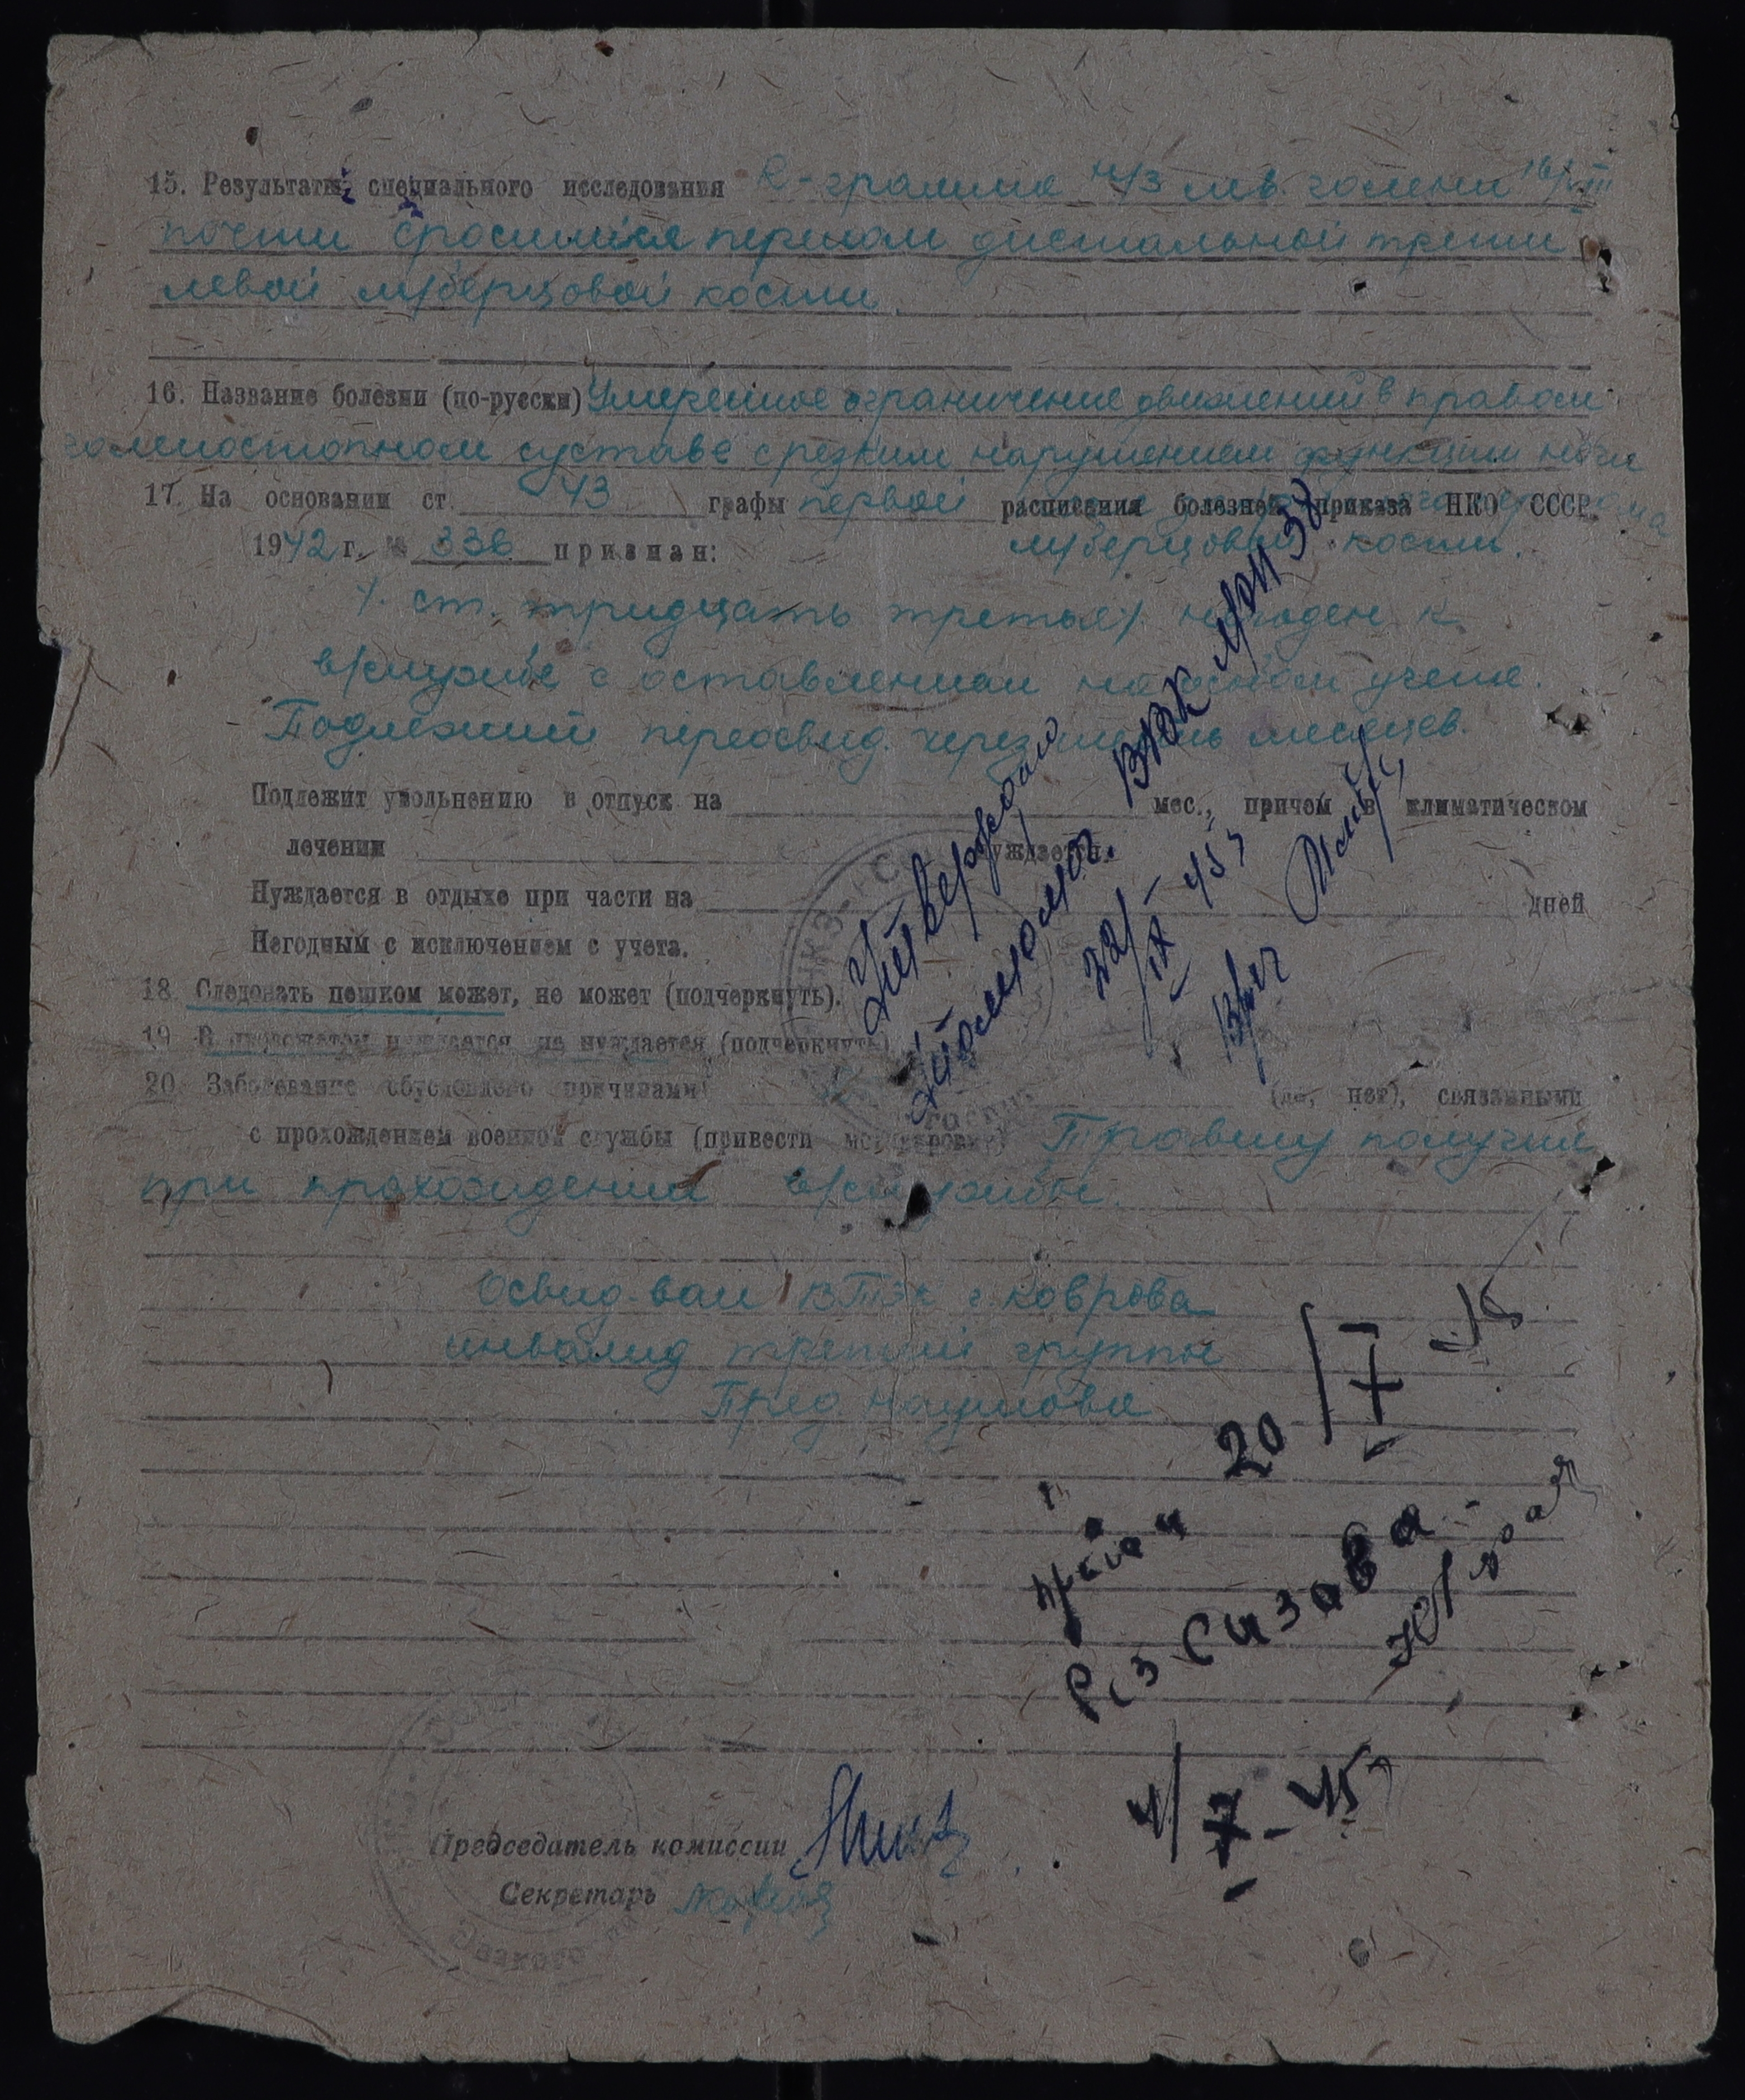 15. Результаты специального исследования R-грамма н/3 лев. голени 16/VIII
почти сросшийся перелом дистальной трети
левой м/берцовой кости.
16. Название болезни (по-русски) Умеренное ограничение движений в правом
голеностопном суставе с резким нарушением функции
17. На основании ст. 43 графы первой расписания болезней приказа НКО СССР.
м/берцовой кости.
1942 г. № 336 признан:
/. ст. тридцать третья/. негоден к
в/службе с оставлением на учете.
Подлежит переосвид. через шесть месяцев.
Подлежит увольнению в отпуск на мес., причем в климатическом
лечении нуждается.
Нуждается в отдыхе при части на дней
Негодным с исключением с учета.
18. Следовать пешком может, не может (подчеркнуть).
19. В провожатом нуждается, не нуждается (подчеркнуть)
20. Заболевание обусловлено причинами (да, нет), связанными
с прохождением военной службы (привести мотивировку) Травму получил
при прохождении в/службы.
Утверждаю
ВВК
22/IX 45 г
Освид-ван ВТЭК г. Коврова
инвалид третий группы
Пред. Наумова
20/7 -45
4/7-45
Председатель комиссии
Секретарь